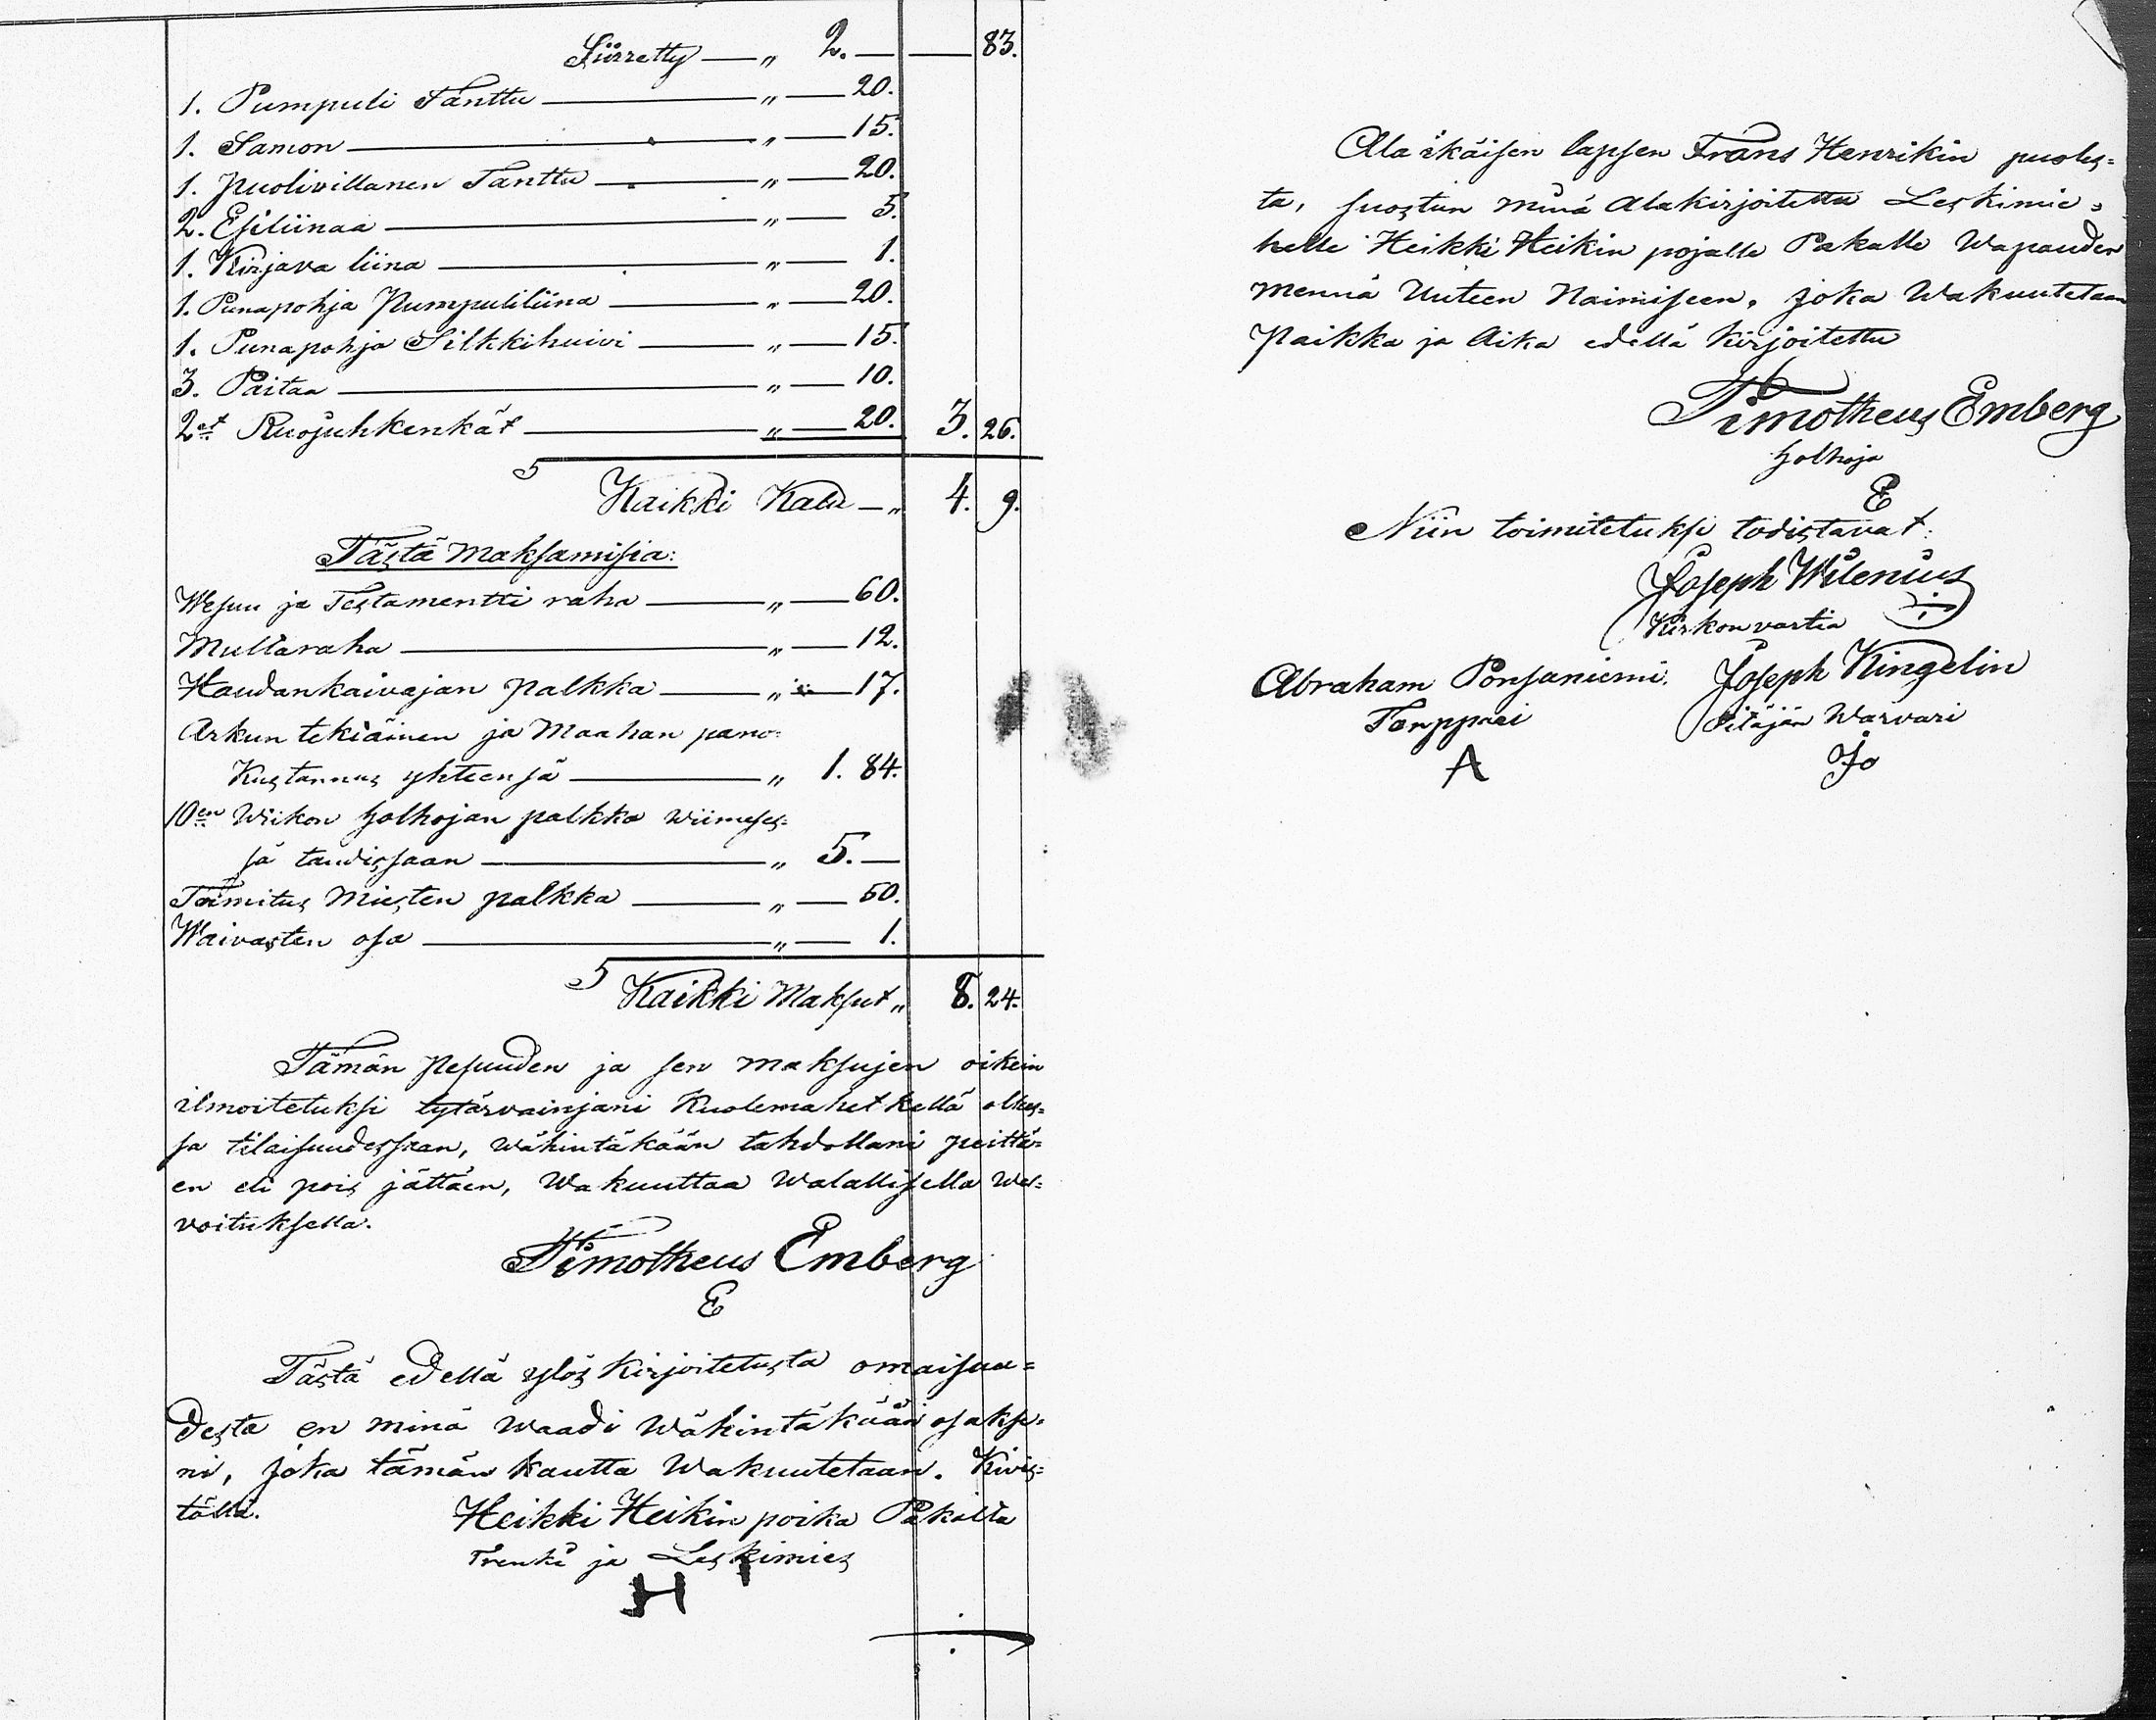 Siirretty — " 2. — — 83.
1. Pumpuli Tänttu — " — 20.
1. Samon — " — 15.
1. Puolivillanen Tänttu — " — 20.
2. Esiliinaa — " — 5.
1. Kirjava liina — " — 1.
1. Punapohja Pumpuliliina — " — 20.
1. Punapohja Silkkihuivi — " — 15.
3. Paitaa — " — 10.
2et Ruojuhkenkät — " — 20. 3. 26.
Kaikki Kalu — " 4. 9.
Tästä Maksamisia:
Wesuu ja Testamentti raha — " — 60.
Multaraha — " — 12.
Haudankaivajan palkka — " — 17.
Arkun tekiäinen ja Maahan pano-
Kustannus yhteensä — " 1. 84.
10en Wiikon holhojan palkka wiimeses-
sä taudissaan — " 5. —
Toimitus Miesten palkka — " — 50.
Waivasten osa — " — 1.
Kaikki Maksut " 8. 24.
Tämän pesuuden ja sen maksujen oikein
ilmoitetuksi tytärvainjani Kuolemahetkellä olles-
sa tilaisuudessaan, wähintäkään tahdollani peittä-
en eli pois jättäen, Wakuuttaa Walallisella Wel-
voituksella.
Timotheus Emberg
E
Tästä edellä ylös kirjoitetusta omaisuu=
desta en minä waadi wähintäkään osakse-
ni, joka tämän kautta Wakuutetaan. Kivis=
töllä.
Heikki Heikin poika Pakilta
Trenki ja Leskimies
H
Ala ikäisen lapsen Frans Henrikin puoles=
ta, suostun minä Alakirjoitettu Leskimie-
helle Heikki Heikin pojalle Pakalle Wapauden
mennä Uuteen Naimiseen, joka Wakuutetaan
Paikka ja Aika edellä kirjoitettu
Timotheus Emberg
holhoja
E
Niin toimitetuksi todistavat:
Joseph Wilenius
Kirkonvartia
Abraham Ponsaniemi. Joseph Kingelin
Torppari Pitäjän Warvari
A Jo